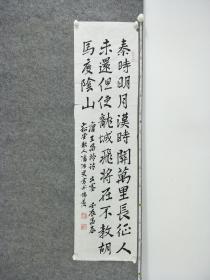 秦時明月漢時關萬里長征人
未還但使龍城飛將在不教胡
馬度陰山
唐王昌齡詩出塞